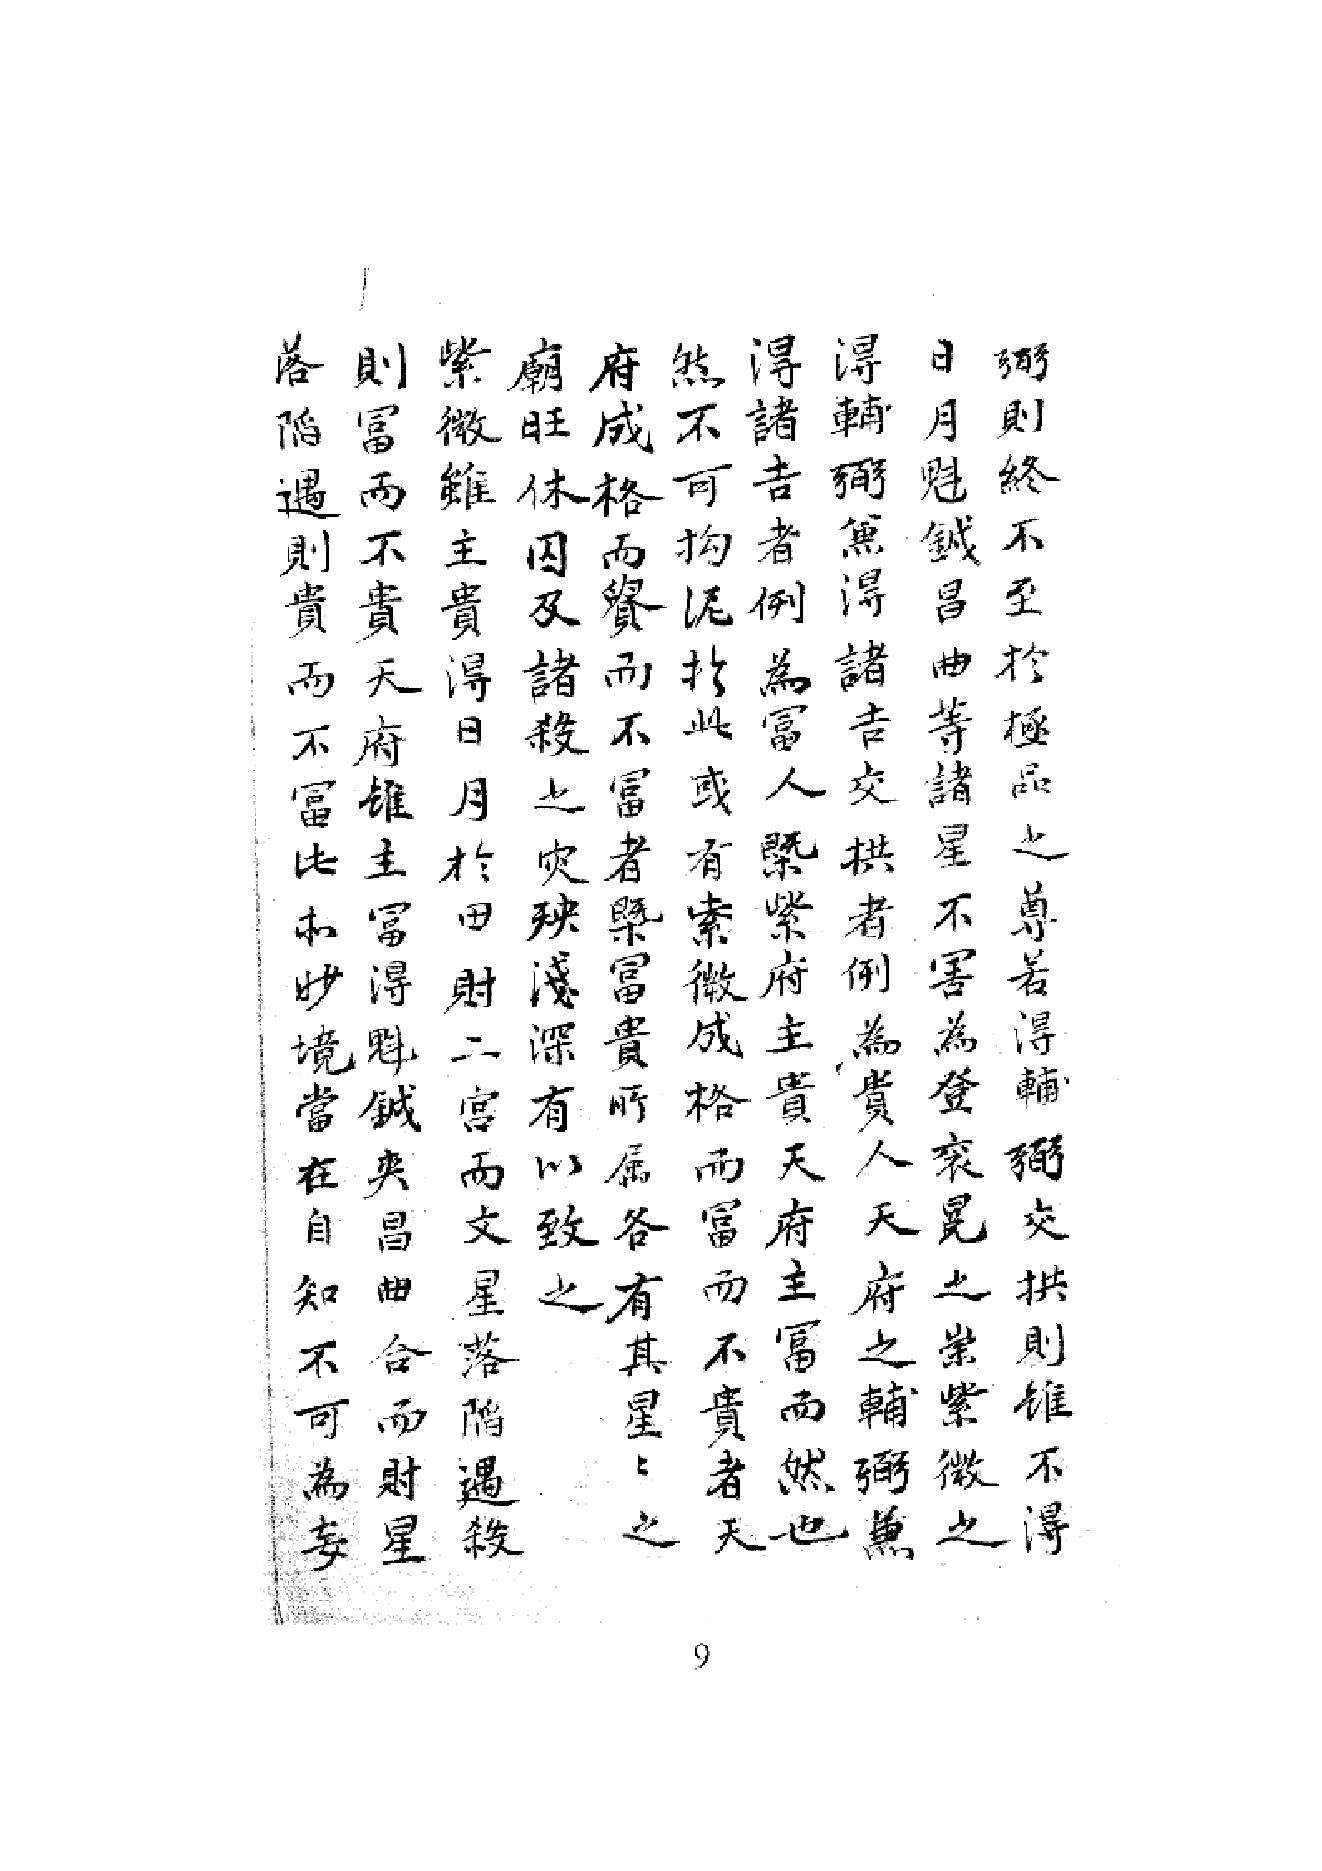 弼則終不至於極品之尊若得輔弼交拱則雖不得
日月魁鉞昌曲等諸星不害為登袞冕之業紫微之
得輔弼兼得諸吉交拱者例為貴人天府之輔弼兼
得諸吉者例為富人槩紫府主貴天府主富而然也
然不可拘泥於此或有紫微成格而富而不貴者天
府成格而貴而不富者槩富貴所属各有其星〻之
廟旺休囚及諸殺之災殃淺深有以致之
紫微雖主貴得日月於田財二宮而文星落陷遇殺
則富而不貴天府雖主富得魁鉞夾昌曲合而財星
落陷遇則貴而不富比和妙境當在自知不可為妄
9